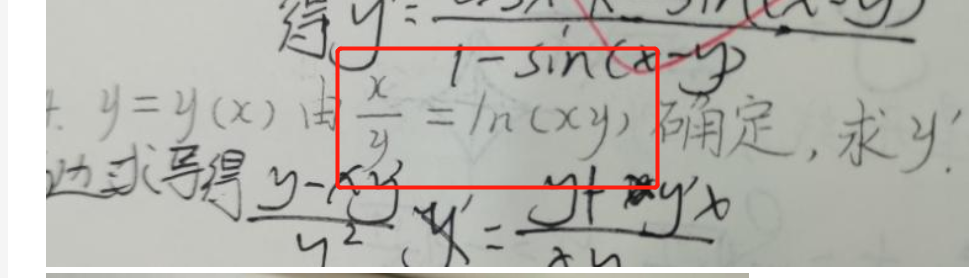 得 y' = sin(x-y) / 1-sin(x-y)
y=y(x) 由 x/y = ln(xy) 确定, 求 y'.
边求导得 y-xy' / y² y' = y+y'x / xy